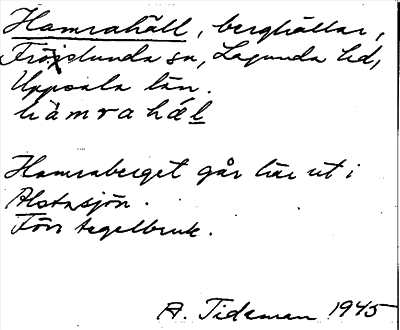 Hamrahäll, berghällar,
Fröslunda sn, Lagunda hd,
Uppsala län.
hàmrahǽl
Hamraberget går här ut i
Alstasjön.
Förr tegelbruk.
A. Tideman 1945